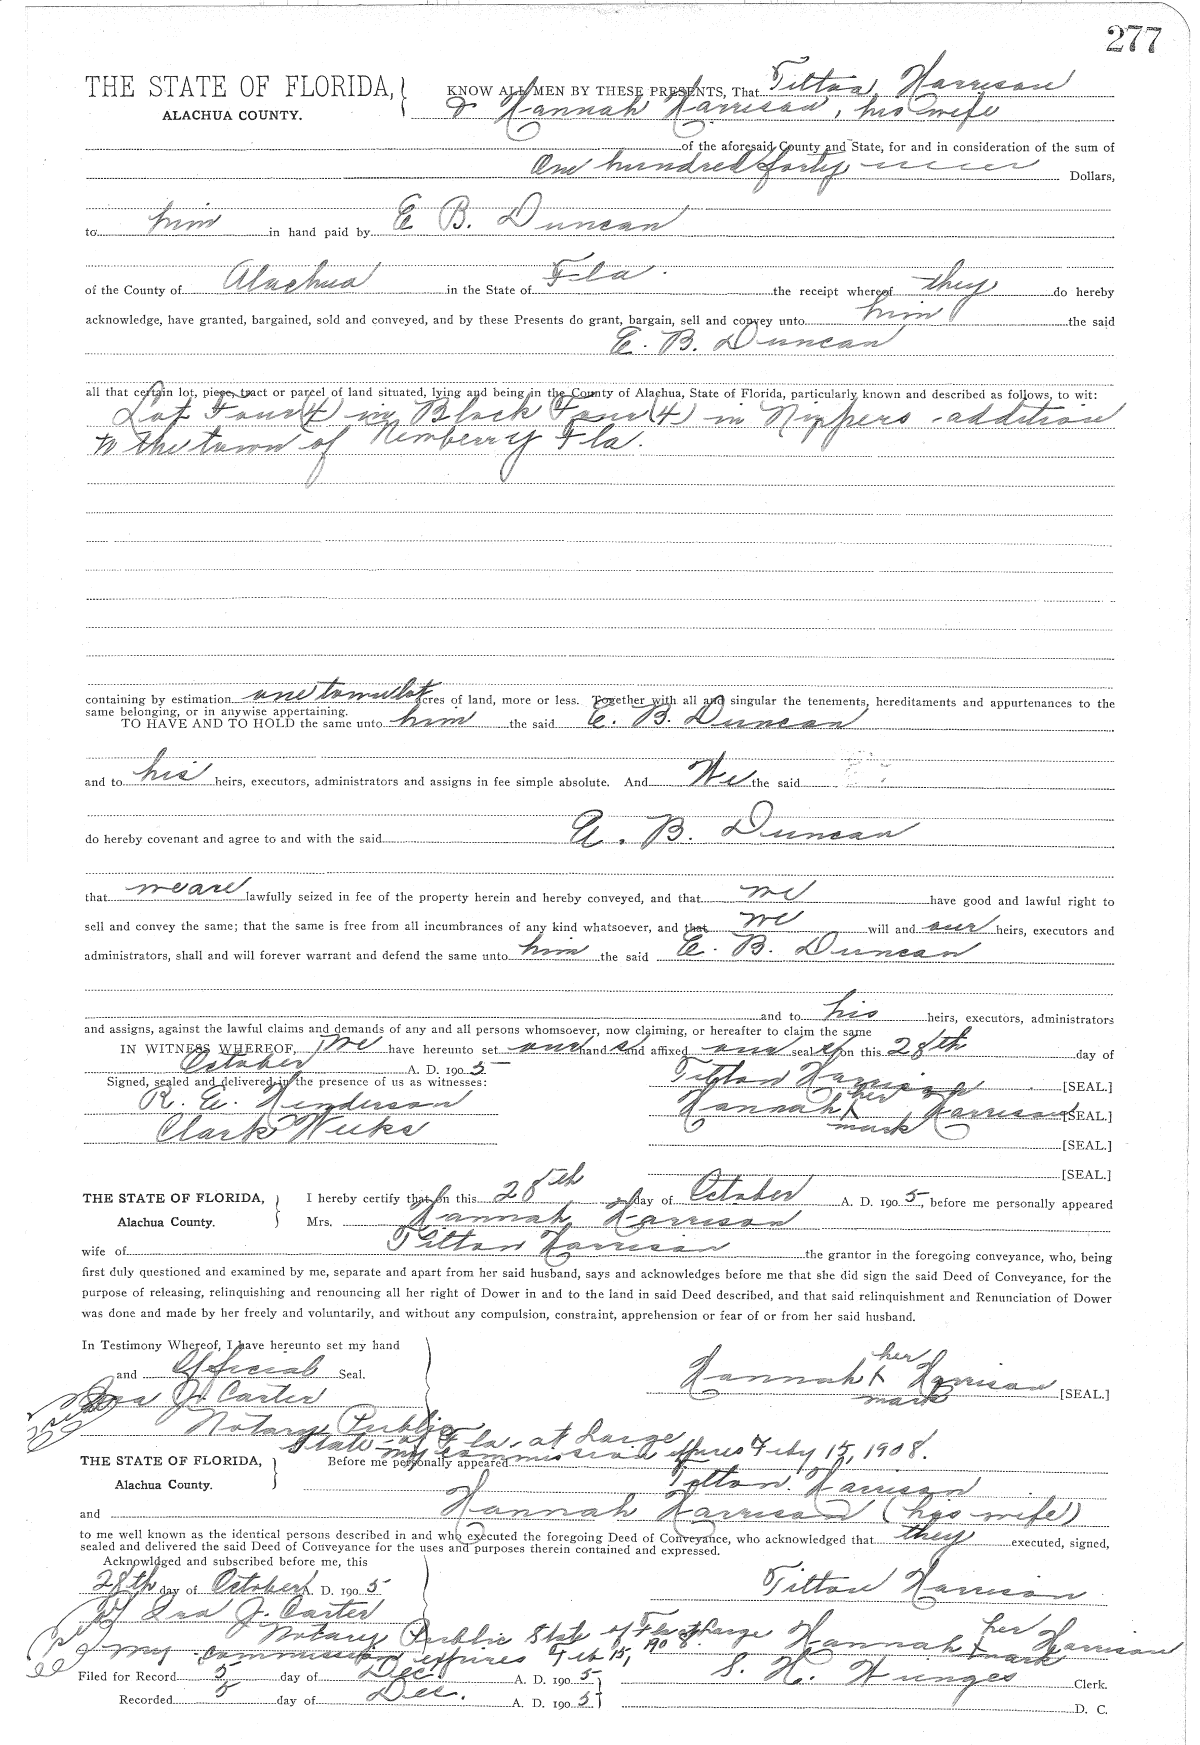 277
THE STATE OF FLORIDA,
ALACHUA COUNTY.
KNOW ALL MEN BY THESE PRESENTS, That Tilton Harrison
& Hannah Harrison, his wife
of the aforesaid County and State, for and in consideration of the sum of
One hundred forty Dollars,
to him in hand paid by E B. Duncan
of the County of Alachua in the State of Fla. the receipt whereof they do hereby
acknowledge, have granted, bargained, sold and conveyed, and by these Presents do grant, bargain, sell and convey unto him the said
E. B. Duncan
all that certain lot, piece, tract or parcel of land situated, lying and being in the County of Alachua, State of Florida, particularly known and described as follows, to wit:
Lot Four (4) in Block Four (4) in Nippers addition
to the town of Newberry Fla.
containing by estimation one town lot acres of land, more or less. Together with all and singular the tenements, hereditaments and appurtenances to the
same belonging, or in anywise appertaining.
TO HAVE AND TO HOLD the same unto him the said E. B. Duncan
and to his heirs, executors, administrators and assigns in fee simple absolute. And We the said
do hereby covenant and agree to and with the said E. B. Duncan
that we are lawfully seized in fee of the property herein and hereby conveyed, and that we have good and lawful right to
sell and convey the same; that the same is free from all incumbrances of any kind whatsoever, and that we will and our heirs, executors and
administrators, shall and will forever warrant and defend the same unto him the said E. B. Duncan
and to his heirs, executors, administrators
and assigns, against the lawful claims and demands of any and all persons whomsoever, now claiming, or hereafter to claim the same
IN WITNESS WHEREOF, We have hereunto set our hand s and affixed our seal s on this 28th day of
October A. D. 190 5
Signed, sealed and delivered in the presence of us as witnesses: Tilton Harrison [SEAL.]
R. E. Henderson her
Hannah X Harrison [SEAL.]
Clark Weeks mark
[SEAL.]
[SEAL.]
THE STATE OF FLORIDA,
Alachua County.
I hereby certify that on this 28th day of October A. D. 190 5, before me personally appeared
Mrs. Hannah Harrison
wife of Tilton Harrison the grantor in the foregoing conveyance, who, being
first duly questioned and examined by me, separate and apart from her said husband, says and acknowledges before me that she did sign the said Deed of Conveyance, for the
purpose of releasing, relinquishing and renouncing all her right of Dower in and to the land in said Deed described, and that said relinquishment and Renunciation of Dower
was done and made by her freely and voluntarily, and without any compulsion, constraint, apprehension or fear of or from her said husband.
In Testimony Whereof, I have hereunto set my hand
and Official Seal. her
Hannah X Harrison [SEAL.]
mark
Ira J. Carter
Notary Public
State of Fla. at Large
my commission expires Feby 15, 1908.
THE STATE OF FLORIDA,
Alachua County.
Before me personally appeared Tilton Harrison
and Hannah Harrison (his wife)
to me well known as the identical persons described in and who executed the foregoing Deed of Conveyance, who acknowledged that they executed, signed,
sealed and delivered the said Deed of Conveyance for the uses and purposes therein contained and expressed.
Acknowldged and subscribed before me, this
28th day of October A. D. 190 5 Tilton Harrison
Ira J. Carter
Notary Public State of Fla at Large her
Hannah X Harrison
mark
My commission expires Feb 15, 1908.
Filed for Record 5 day of Dec. A. D. 190 5 S. H. Wienges Clerk.
Recorded 5 day of Dec. A. D. 190 5 D. C.